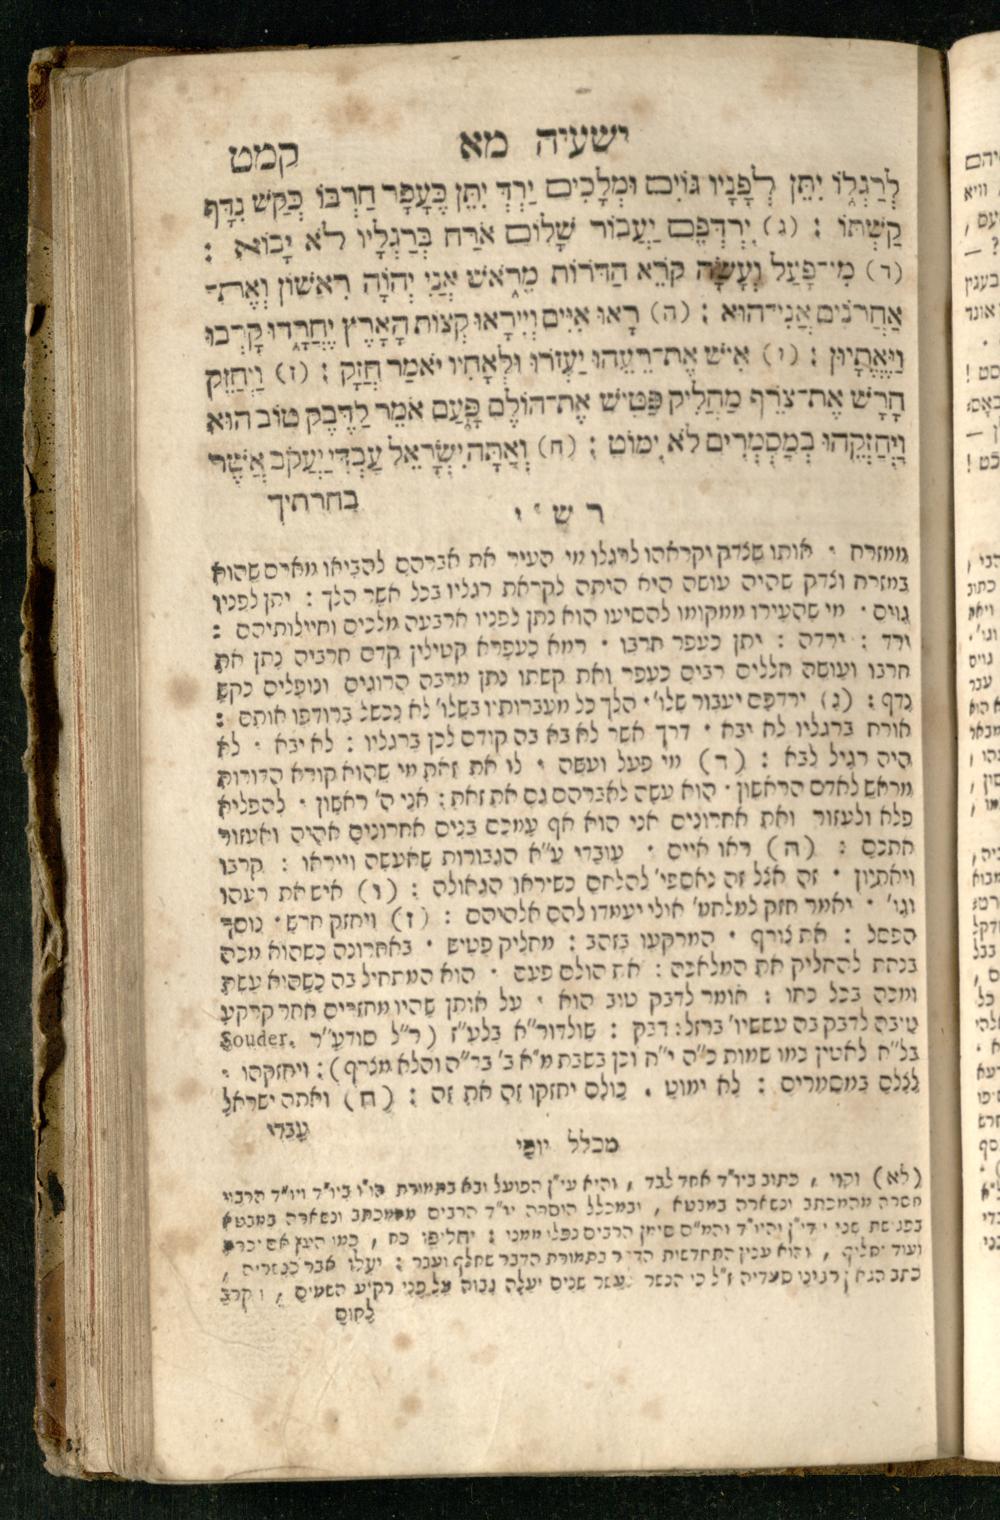 ישעיה מא קמט
לְרַגְלוֹ יִתֵּן לְפָנָיו גּוֹיִם וּמְלָכִים יַרְדְּ יִתֵּן כֶּעָפָר חַרְבּוֹ כְּקַשׁ נִדָּף
קַשְׁתּוֹ : (ג) יִרְדְּפֵם יַעֲבוֹר שָׁלוֹם אֹרַח בְּרַגְלָיו לֹא יָבוֹא :
(ד) מִי־פָעַל וְעָשָׂה קֹרֵא הַדֹּרוֹת מֵרֹאשׁ אֲנִי יְהוָֹה רִאשׁוֹן וְאֶת־
אַחֲרֹנִים אֲנִי־הוּא : (ה) רָאוּ אִיִּים וְיִירָאוּ קְצוֹת הָאָרֶץ יֶחֱרָדוּ קָרְבוּ
וַיֶּאֱתָיוּן : (ו) אִישׁ אֶת־רֵעֵהוּ יַעְזֹרוּ וּלְאָחִיו יֹאמַר חֲזָק : (ז) וַיְחַזֵּק
חָרָשׁ אֶת־צֹרֵף מַחֲלִיק פַּטִּישׁ אֶת־הוֹלֶם פָּעַם אֹמֵר לַדֶּבֶק טוֹב הוּא
וַיְחַזְּקֵהוּ בְמַסְמְרִים לֹא יִמּוֹט : (ח) וְאַתָּה יִשְׂרָאֵל עַבְדִּי יַעֲקֹב אֲשֶׁר
בחרתיך
רש״י
ממזרח · אותו שצדק יקראהו לרגלו מי העיר את אברהם להביאו מארם שהוא
במזרח וצדק שהיה עושה היא היתה לקראת רגליו בכל אשר הלך : יתן לפניו
גוים · מי שהעירו ממקומו להסיעו הוא נתן לפניו ארבעה מלכים וחיילותיהם :
ירד : ירדה : יתן כעפר חרבו · רמא כעפרא קטילין קדם חרביה נתן את
חרבו ועושה חללים רבים כעפר ואת קשתו נתן מרבה הרוגים ונופלים כקש
נדף : (ג) ירדפם יעבור שלו׳ · הלך כל מעברותיו בשלו׳ לא נכשל ברודפו אותם :
אורח ברגליו לא יבא · דרך אשר לא בא בה קודם לכן ברגליו : לא יבא · לא
היה רגיל לבא : (ד) מי פעל ועשה · לו את זאת מי שהוא קורא הדורות
מראש לאדם הראשון · הוא עשה לאברהם גם את זאת : אני ה׳ ראשון · להפליא
פלא ולעזור ואת אחרונים אני הוא אף עמכם בנים אחרונים אהיה ואעזור
אתכם : (ה) ראו איים · עובדי ע״א הגבורות שאעשה וייראו : קרבו
ויאתיון · זה אצל זה נאספי׳ להלחם כשיראו הגאולה : (ו) איש את רעהו
וגו׳ · יאמר חזק למלחמ׳ אולי יעמדו להם אלהיהם : (ז) ויחזק חרש · נוסך
הפסל : את צורף · המרקעו בזהב : מחליק פטיש · באחרונה כשהוא מכה
בנחת להחליק את המלאכה : את הולם פעם · הוא המתחיל בה כשהיא עשת
ומכה בכל כחו : אומר לדבק טוב הוא · על אותן שהיו מחזרים אחר קרקע
טובה לדבק בה עששיו׳ ברזל : דבק : שולדור״א בלע״ז (ר״ל סודע״ר Souder.
בל״א לאטין כמו שמות כ״ה י״ח וכן בשבת מ״א ב׳ בד״ה והלא מצרף) : ויחזקהו ·
לצלם במסמרים : לא ימוט · כולם יחזקו זה את זה : (ח) ואתה ישראל
עבדי
מכלל יופי
(לא) וקוי , כתוב ביו״ד אחד לבד , והיא עי״ן הפועל ובא בתמורת הו״ו ביו״ד ויו״ד הרבוי
חסרה מהמכתב ונשארה במבטא , ובמכלל הוסרה יו״ד הרבים מהמכתב ונשארה במבטא
בפגישת שני יודי״ן והיו״ד והמ״ם סימן הרבים נפלו ממנו : יחליפו כח , כמו היעץ אם יכרת
ועוד יחליף , והוא ענין התחדשות הדבר בתמורת הדבר שחלף ועבר : יעלו אבר כנשרים ,
כתב הגאון רבינו סעדיה ז״ל כי הנשר עשר שנים יעלה גבוה על פני רקיע השמים , וקרב
לקום